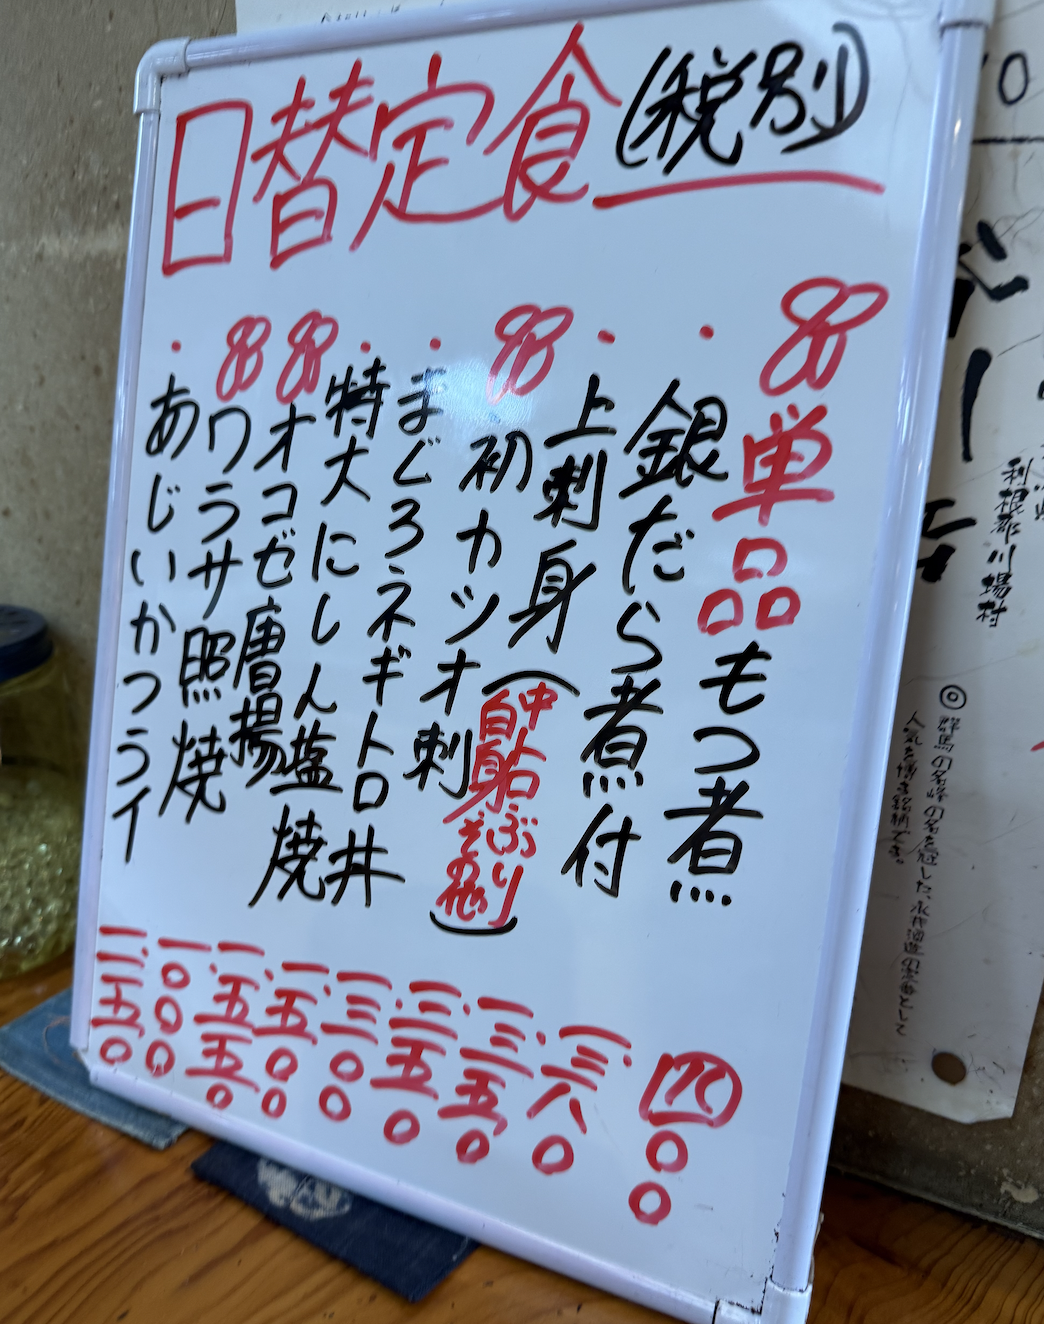 日替定食(税別)
単品もつ煮 四〇〇
銀だら煮付 一、三六〇
上刺身(中トロぶり
白身その他) 一、三五〇
初カツオ刺 一、三五〇
まぐろネギトロ丼 一、三〇〇
特大にしん塩焼 一、五〇〇
オコゼ唐揚 一、五五〇
ワラサ照焼 一〇〇〇
あじいかつライ 一二五〇
利根郡川場村
◎群馬の名峠の名を冠した、永井酒造の
人気を博す銘柄です。